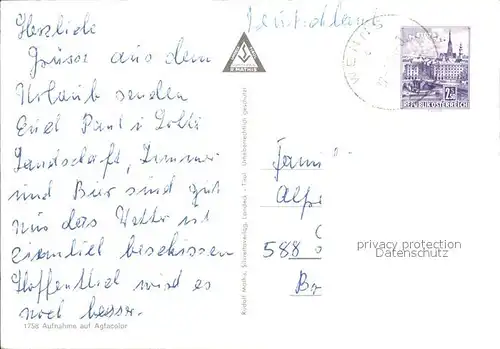 Herzliche
Grüsse aus dem
Urlaub senden
Euch Paul u. Lotti
Landschaft, Zimmer
und Bier sind gut
nur das Wetter ist
ziemlich beschissen
Hoffentlich wird es
noch besser.
1758 Aufnahme auf Agfacolor
R. MATHIS
Rudolf Mathis, Silvrettaverlag, Landeck - Tirol Urheberrechtlich geschützt
Deutschland
REPUBLIK ÖSTERREICH
Fam
Alfre
588
privacy protection
Datenschutz